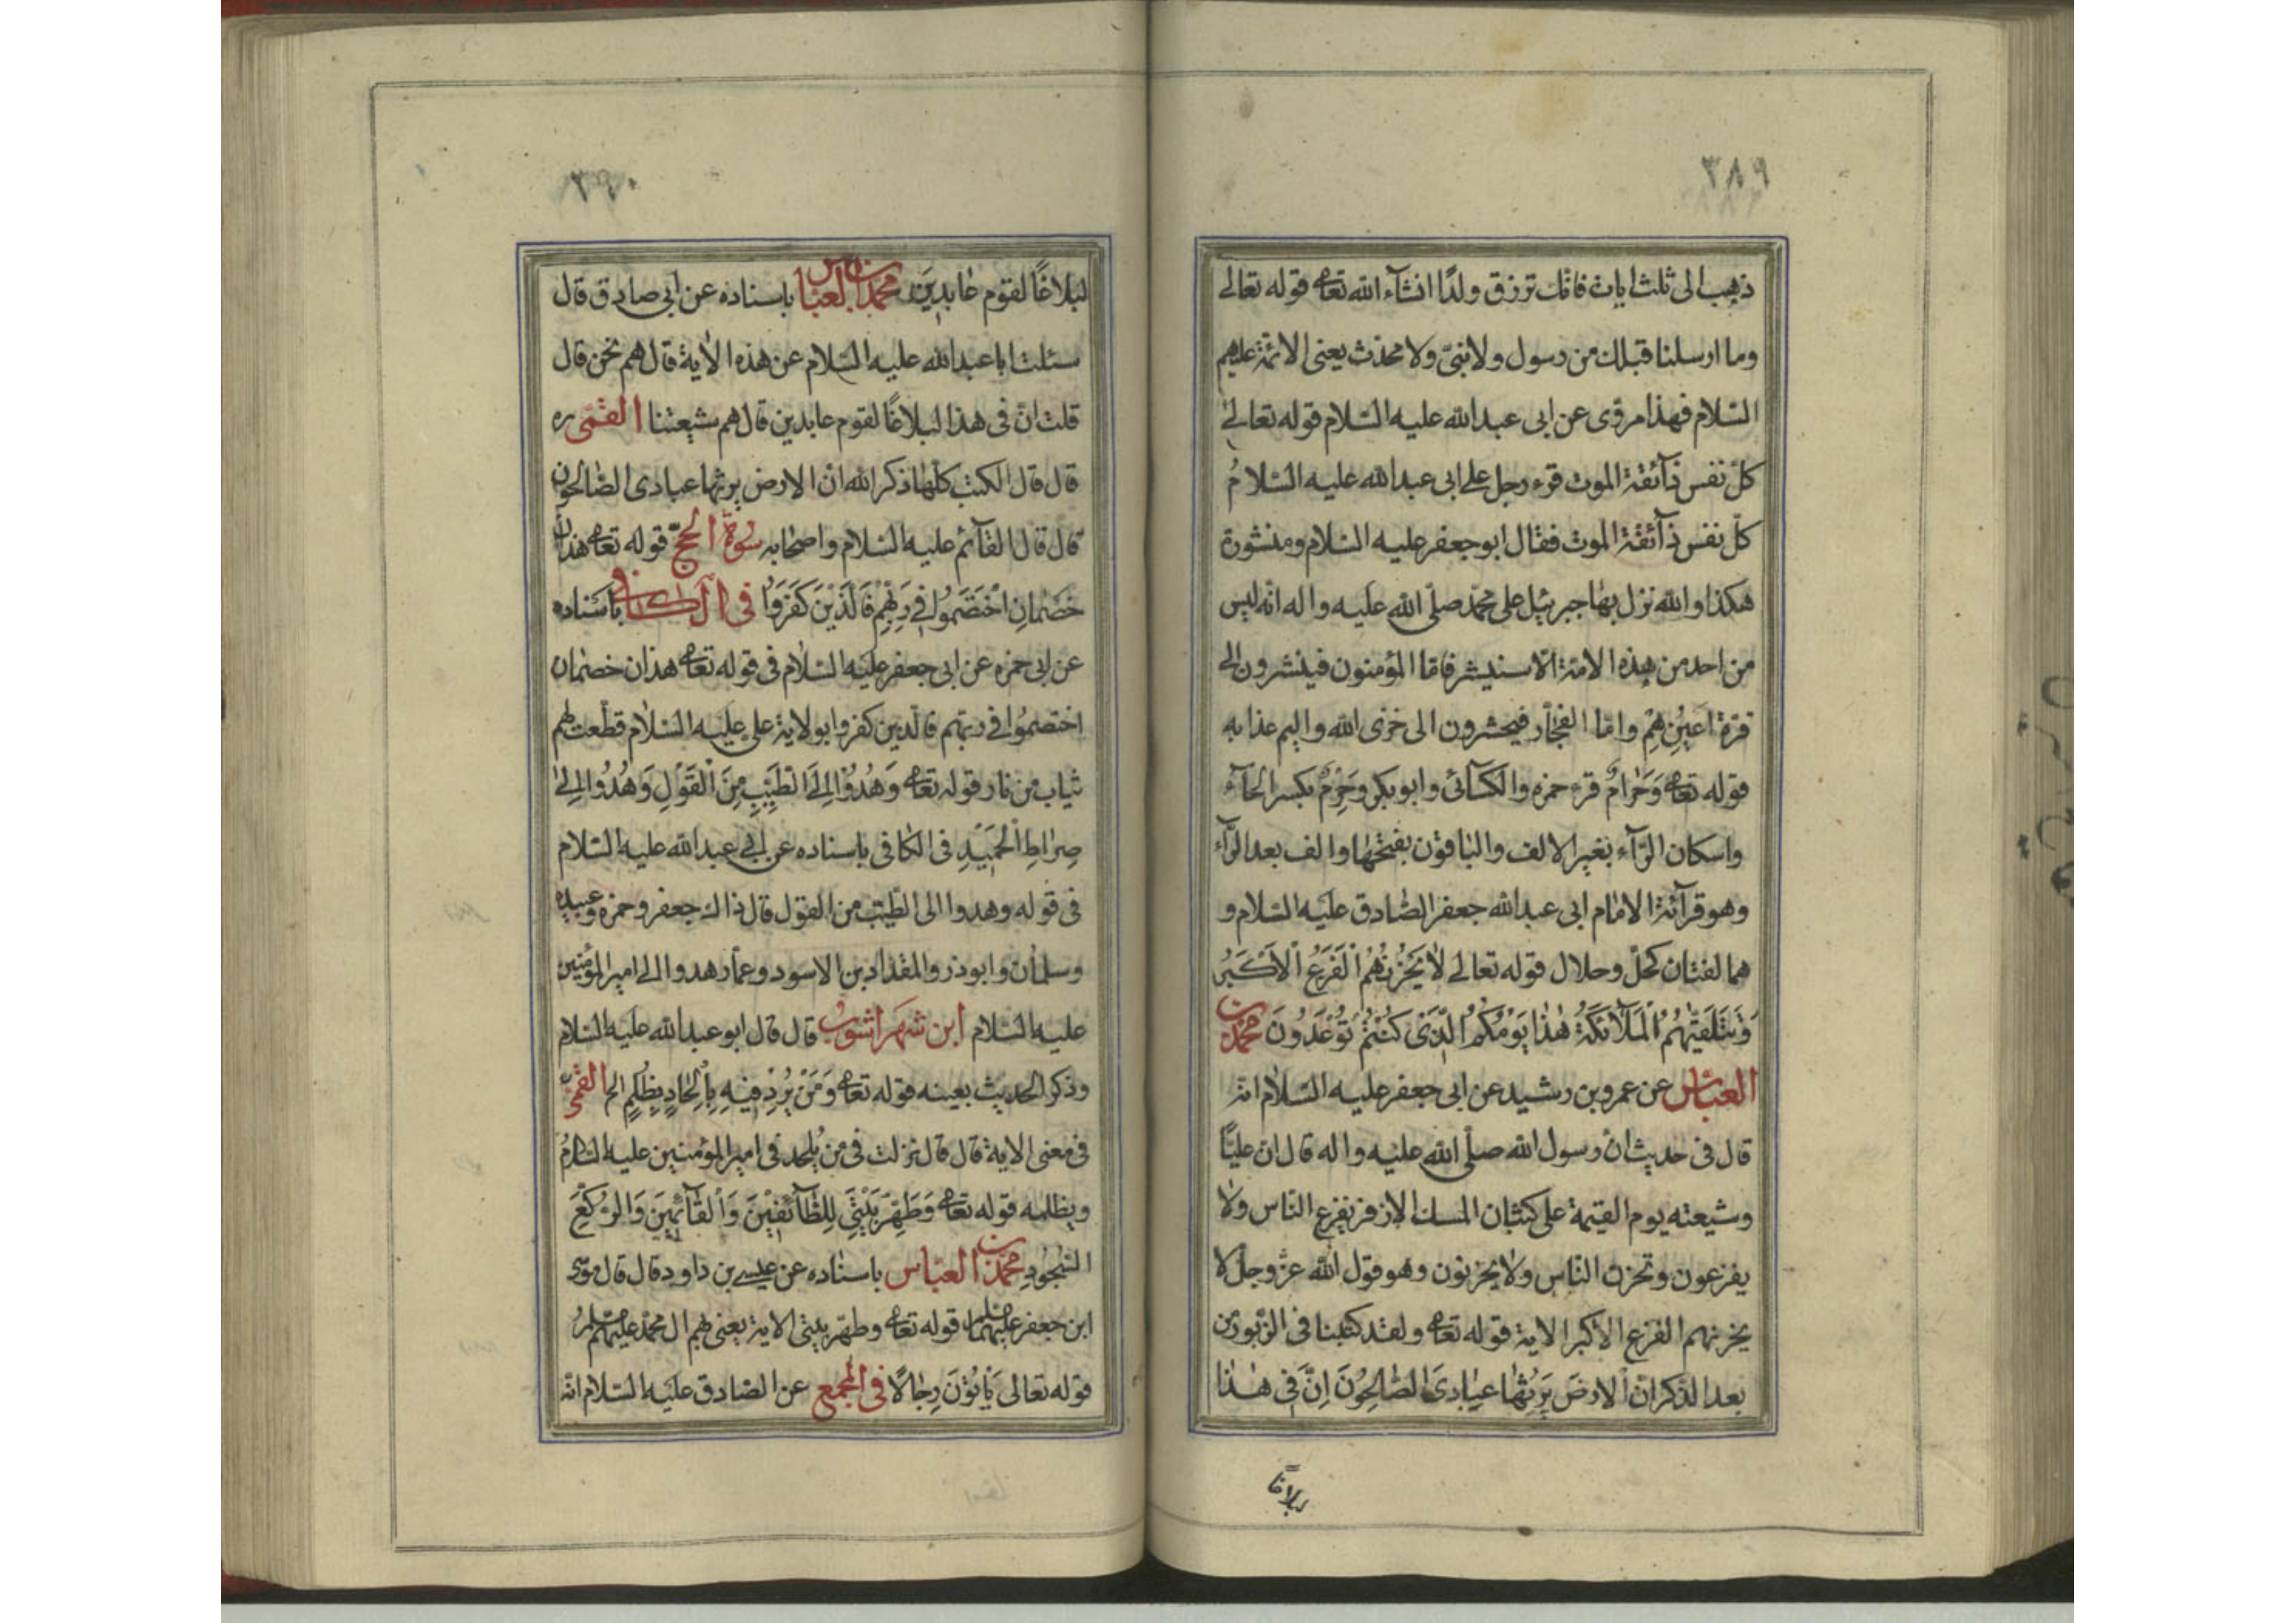 ٣٨٩
ذهب الى ثلث ايات فانك ترزق ولدًا انشآء الله تعا قوله تعالى
وما ارسلنا قبلك من رسول ولا نبىّ ولا محدّث يعنى الائمّة عليهم
السّلام فهذا مروّى عن ابى عبد الله عليه السّلام قوله تعالى
كلّ نفس ذآئقة الموت قرء رجل على ابى عبد الله عليه السّلامُ
كلّ نفس ذآئقة الموت فقال ابو جعفر عليه السّلام ومنشورة
هكذا والله نزل بها جبرئيل على محمّد صلّى الله عليه واله انّه ليس
من احد من هذه الامّة الّا سنيشر فامّا المؤمنون فينشرون الى
قرّة اَعيُنِهِمْ وامّا الفجّار فيحشرون الى خزى الله واليم عذابه
قوله تعا وَحَرامٌ قرء حمزه والكسآئى وابو بكر وحِرْمٌ بكسر الحآء
واسكان الرّآء بغير الالف والباقون بفتحها والف بعد الرّآء
وهو قرآئة الامام ابى عبد الله جعفر الصّادق عليه السّلام و
هما لغتان كحلّ وحلال قوله تعالى لا يَحْزُنُهُمُ الْفَزَعُ الْاَكْبَرُ
وَتَتَلَقّيٰهُمُ الْمَلآئكَةُ هٰذا يَوْمُكُمُ الَّذى كُنْتُمْ تُوعَدُونَ محمّد بن
العبّاس عن عمرو بن رشيد عن ابى جعفر عليه السّلام انّه
قال فى حديث انّ رسول الله صلّى الله عليه واله قال ان عليًّا
وشيعته يوم القيمة على كثبان المسك الاذفر يفزع النّاس ولا
يفزعون وتحزن النّاس ولا يحزنون وهو قول الله عزّ وجلّ لا
يحزنهم الفزع الاكبر الاية قوله تعا ولقد كتبنا فى الزّبور من
بعد الذّكر انّ الارضَ يَرِثُها عبادىَ الصّالِحُونَ اِنَّ فى هٰذا
لبلاغًا
٣٩٠
لبلاغًا لقوم عابدينَ محمّد بن العبّاس باسناده عن ابى صادق قال
سئلت ابا عبد الله عليه السّلام عن هذه الاية قال هم نحن قال
قلت انّ فى هذا لبلاغًا لقوم عابدين قال هم شيعتنا القمّى ره
قال قال الكتب كلّها ذكر الله انّ الارض يرثها عبادى الصّالحون
قال قال القآئم عليه السّلام واصحابه سورة الحجّ قوله تعا هذانِ
خَصْمانِ اخْتَصَمُوا فى رَبِّهِمْ فَالَّذينَ كَفَرُوا فى الكافى باسناده
عن ابى حمزه عن ابى جعفر عليه السّلام فى قوله تعا هذان خصمان
اختصمُوا فى ربّهم فالّذين كفروا بولاية على عليه السّلام قطّعت لهم
ثياب من نار قوله تعا وَهُدُوا اِلَى الطَّيِّبِ مِنَ الْقَوْلِ وَهُدُوا اِلى
صِراطِ الْحَميدِ فى الكافى باسناده عن ابى عبد الله عليه السّلام
فى قوله وهدوا الى الطّيّب من القول قال ذاك جعفر وحمزه وعبيده
وسلمان وابوذر والمقداد بن الاسود وعمّار هدوا الى امير المؤمنين
عليه السّلام ابن شهر اشوب قال قال ابو عبد الله عليه السّلام
وذكر الحديث بعينه قوله تعا وَمَنْ يُرِدْ فيهِ بِاِلْحادٍ بِظُلْمٍ الخ القمّى
فى معنى الاية قال قال نزلت فى من يُلحد فى امير المؤمنين عليه السّلامُ
ويظلمه قوله تعا وَطَهِّرْ بَيْتِىَ لِلطّآئفينَ وَالْقآئِمينَ وَالرُّكَّعِ
السُّجُودِ محمّد بن العبّاس باسناده عن عيسى بن داود قال قال موسى
ابن جعفر عليهما السلم قوله تعا وطهّر بيتى الاية يعنى بهم ال محمّد عليهم السّلمُ
قوله تعالى يَاْتُونَ رِجالًا فى المجمع عن الصّادق عليه السّلام انّه